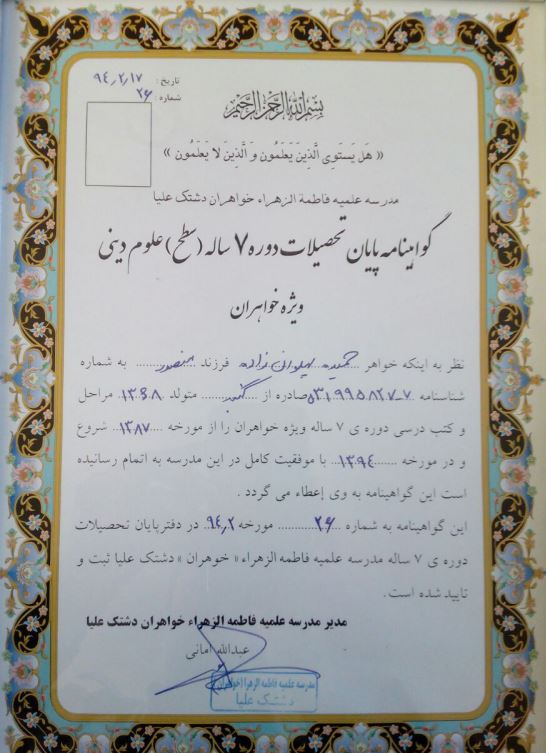 تاریخ: ۹۴٫۲٫۱۷
شماره: ۲۶
بسم الله الرحمن الرحیم
« هَل یَستَوِی الَّذینَ یَعلَمُون وَ الَّذینَ لا یَعلَمُون »
مدرسه علمیه فاطمة الزهراء خواهران دشتک علیا
گواهینامه پایان تحصیلات دوره ۷ ساله (سطح) علوم دینی
ویژه خواهران
نظر به اینکه خواهر حمیده پهلوانی زاده فرزند منصور به شماره
شناسنامه صادره از متولد ۱۳۶۸ مراحل
و کتب درسی دوره ی ۷ ساله ویژه خواهران را از مورخه ۱۳۸۷ شروع
و در مورخه ۱۳۹۴ با موفقیت کامل در این مدرسه به اتمام رسانیده
است این گواهینامه به وی إعطاء می گردد .
این گواهینامه به شماره ۲۶ مورخه ۹۴٫۲ در دفترپایان تحصیلات
دوره ی ۷ ساله مدرسه علمیه فاطمه الزهراء« خوهران »دشتک علیا ثبت و
تایید شده است.
مدیر مدرسه علمیه فاطمه الزهراء خواهران دشتک علیا
عبدالله امانی
مدرسه علمیه فاطمه الزهرا (خواهران)
دشتک علیا